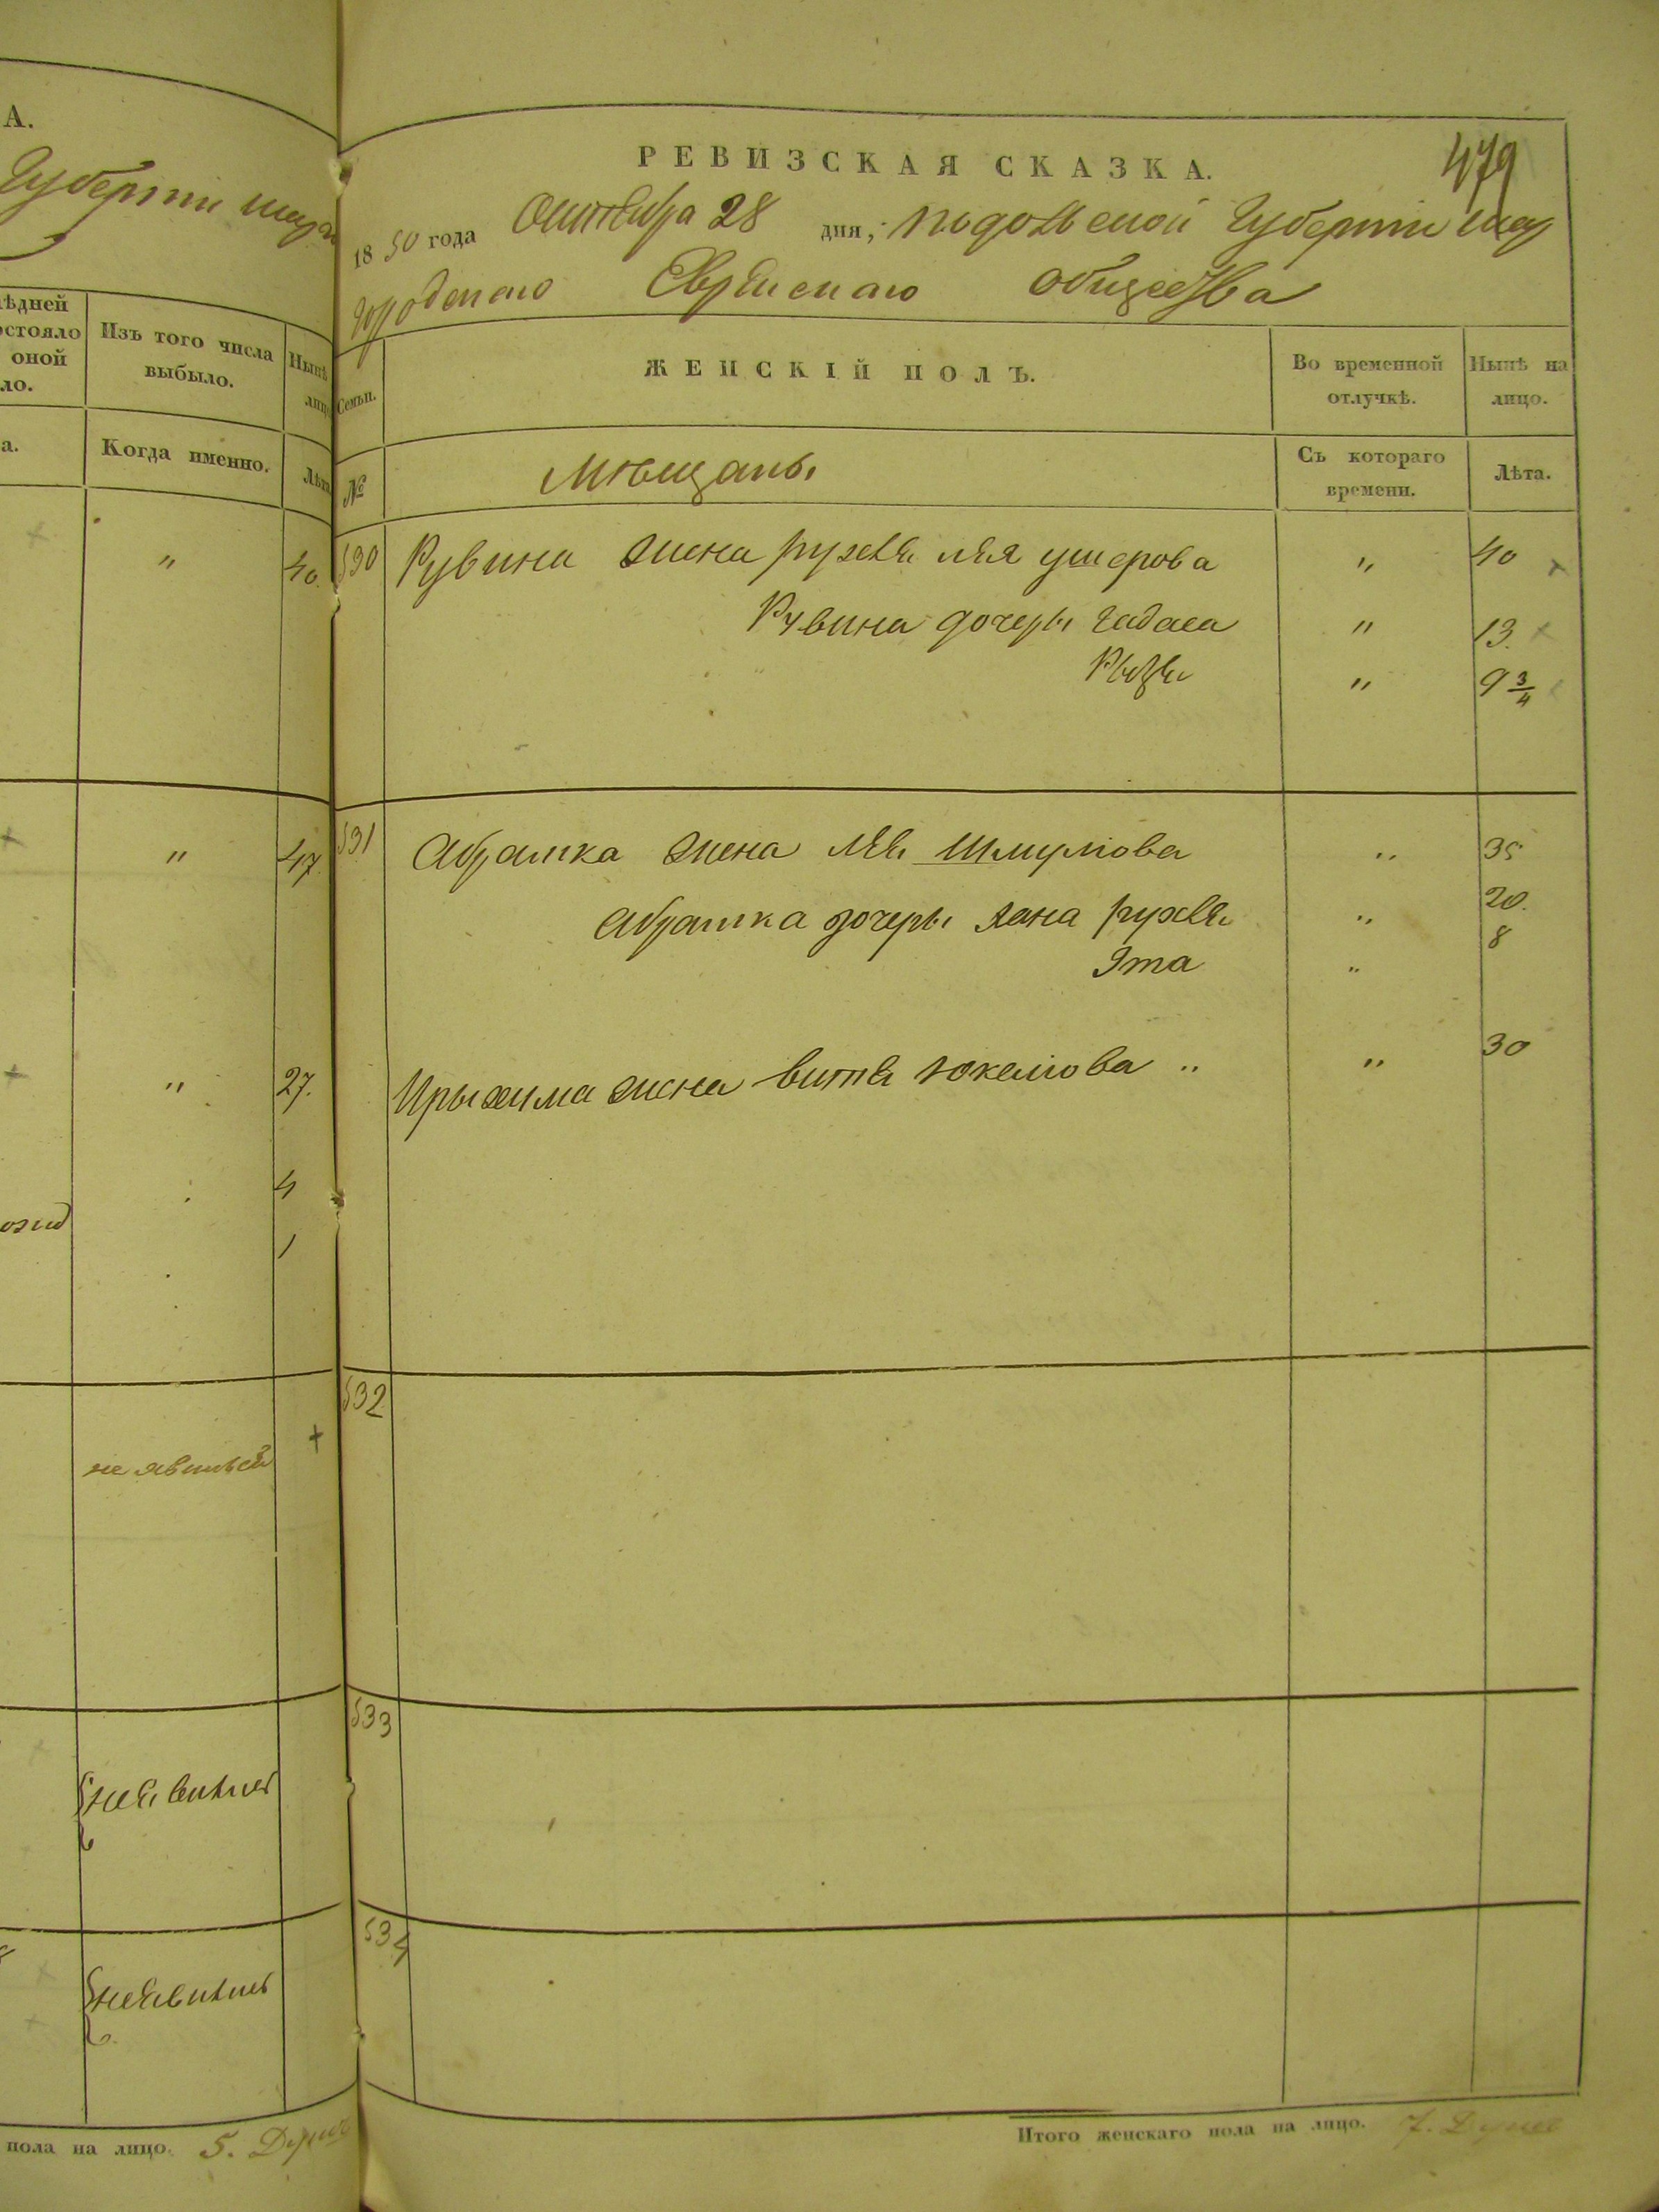 А.
Губерніи шар
ѣдней
остояло
оной
ло.
Изъ того числа
выбыло.
Нынѣ
лицо
а.
Когда именно.
Лѣта
"
40.
"
47
"
27.
4
1
не явился
неявился
неявился
пола на лицо. 5. Душъ
РЕВИЗСКАЯ СКАЗКА.
479
1850 года Октября 28 дня, Подольской Губерніи шар
городскаго Еврейскаго общества
Семьи.
ЖЕНСКІЙ ПОЛЪ.
Во временной
отлучкѣ.
Нынѣ на
лицо.
№
Мѣщаны
Съ котораго
времени.
Лѣта.
530 Рувина жена рухля лея ушерова " 40
Рувина дочеры гадаса " 13.
" 9 3/4
531 Абрашка жена лея Шмулiова " 35
Абрашка дочеры хана рухля " 20.
Эта " 8
жена " 30
532
533
534
Итого женскаго пола на лицо. 7. Душъ